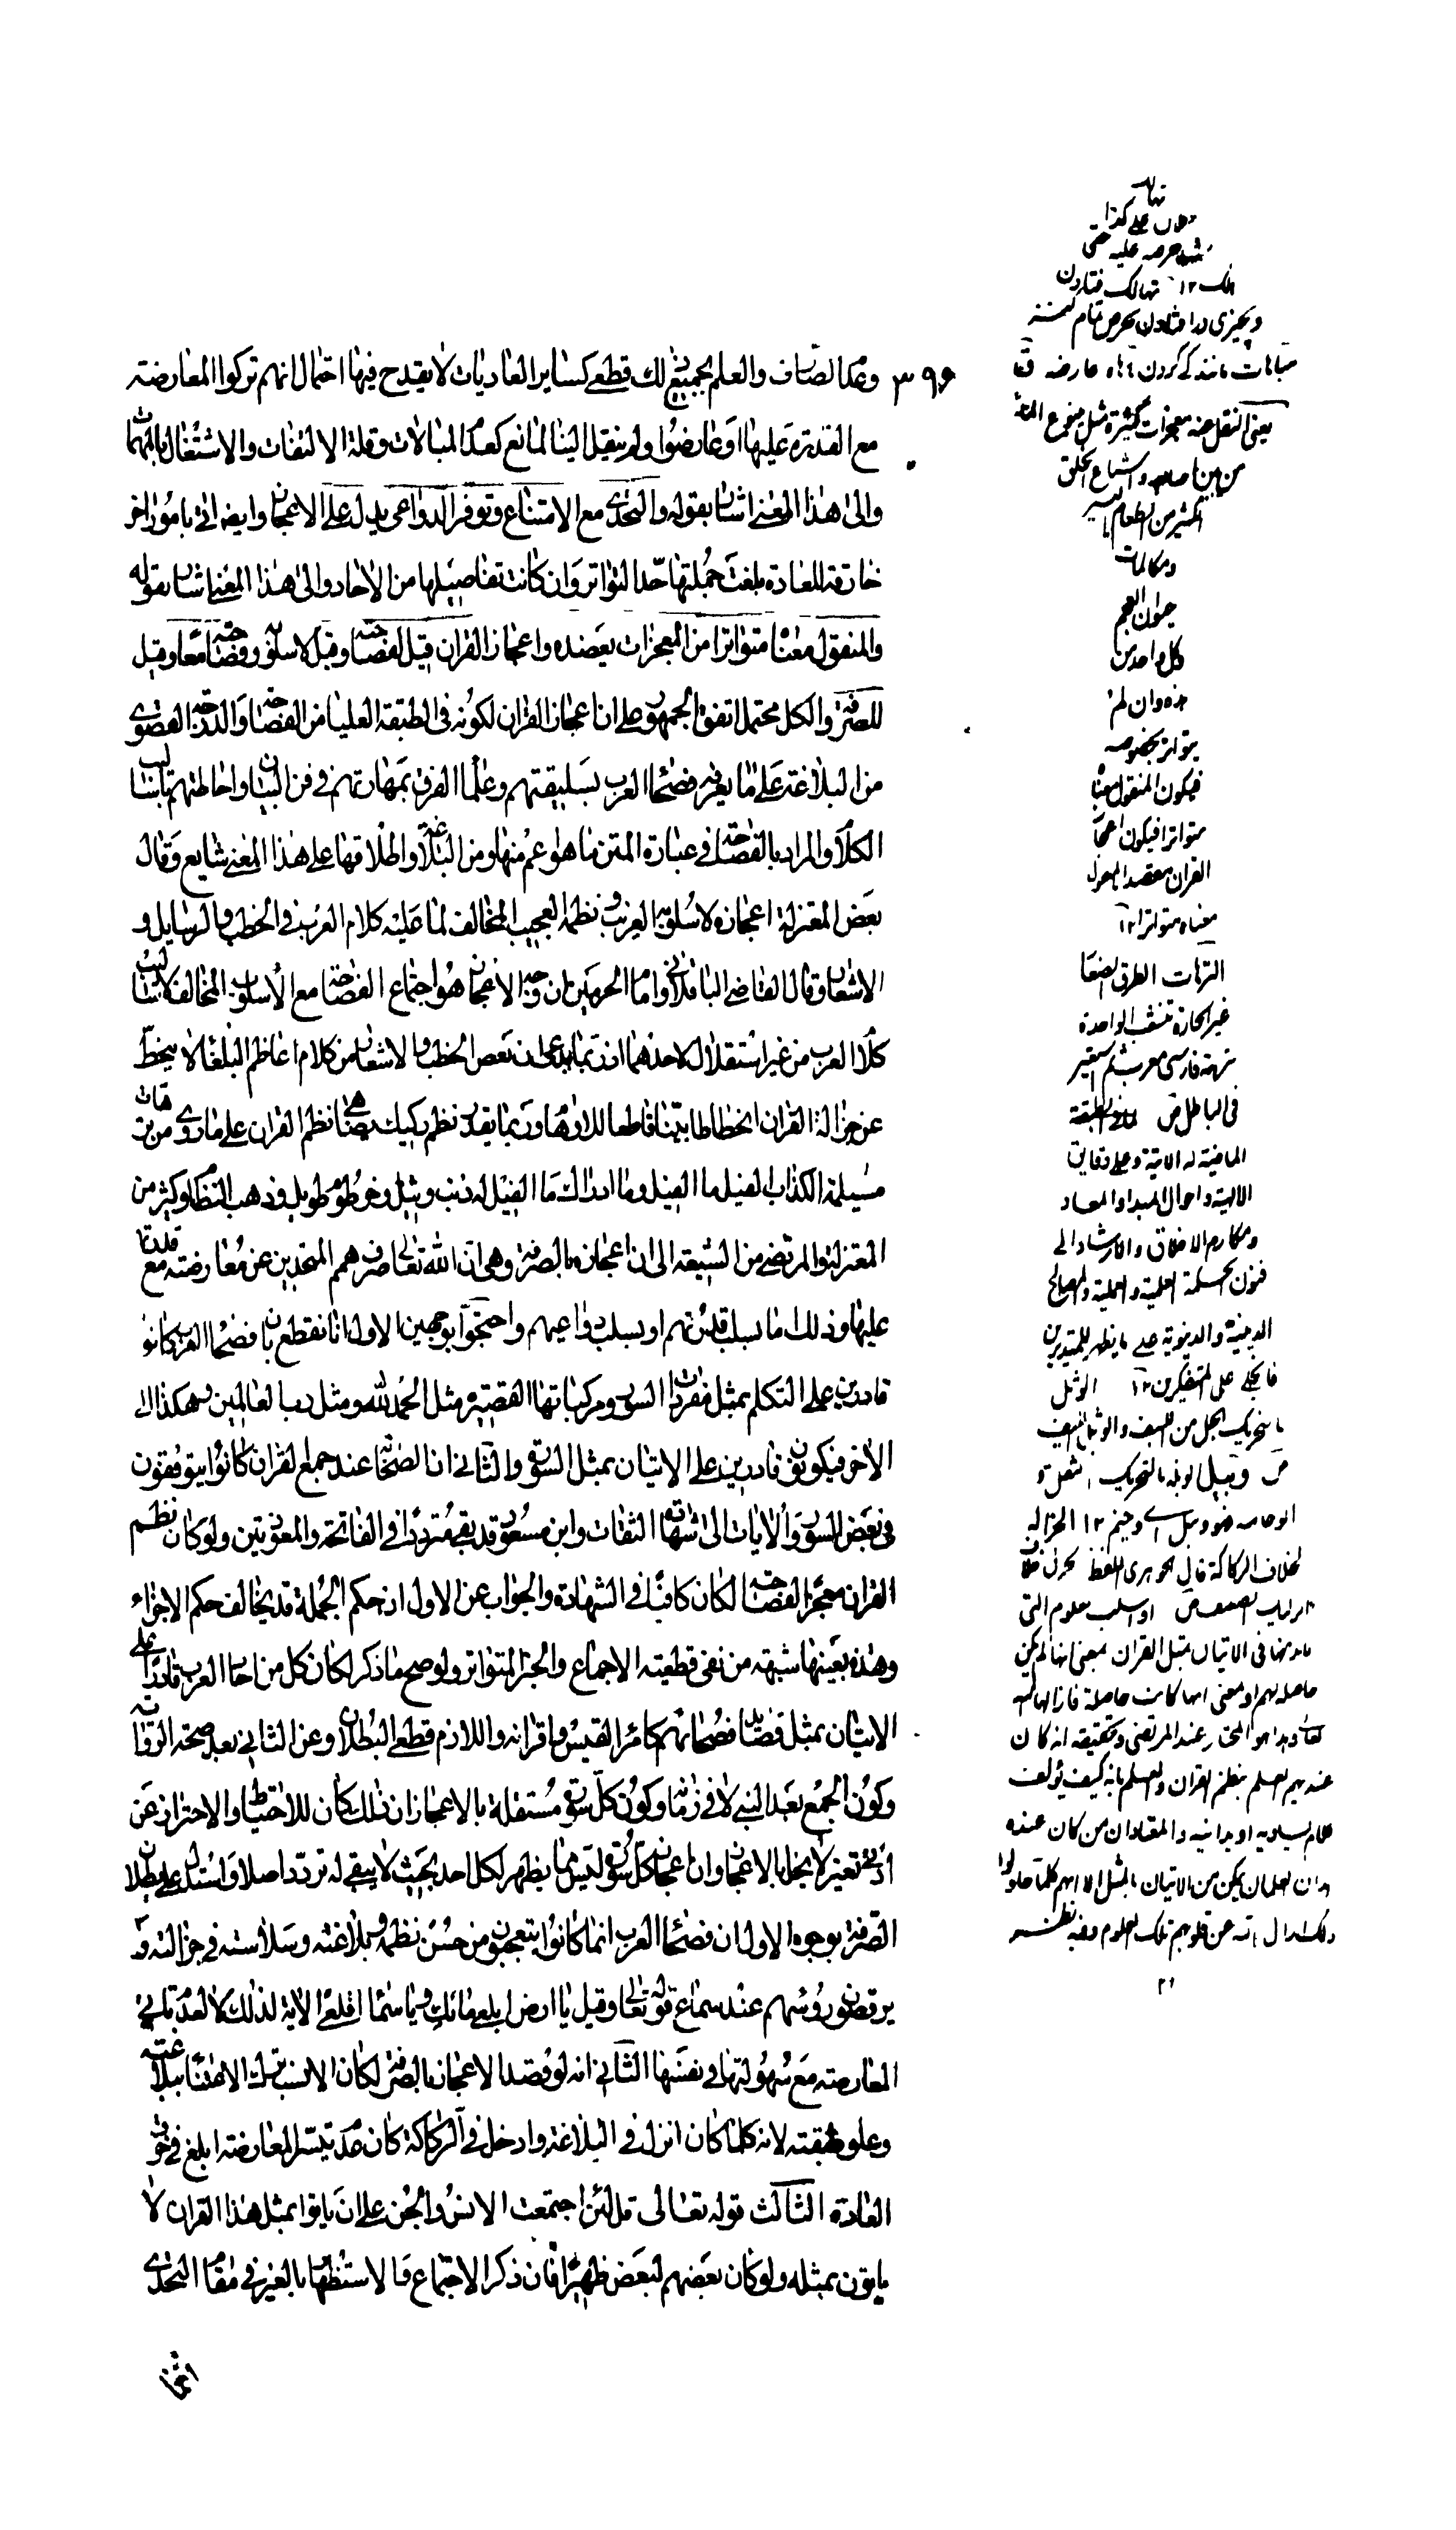 ٣٩٦
وعدم الصارف والعلم بجميع ذلك قطعى كساير العاديات لا يقدح فيها احتمال انهم تركوا المعارضة
مع القدرة عليها او عارضوا ولم ينقل الينا لمانع كعدم المبالات وقلة الالتفات والاشتغال بالمهمات
والى هذا المعنى اشار بقوله والتحدى مع الامتناع وتوفر الدواعى يدل على الاعجاز وايضا اتى بامور اخر
خارقة للعادة بلغت جملتها حد التواتر وان كانت تفاصيلها من الاحاد والى هذا المعنى اشار بقوله
والمنقول معناه متواترا من المعجزات يعضده واعجاز القران قيل لفصاحته وقيل لاسلوبه وفصاحته معا وقيل
للصرفة والكل محتمل اتفق الجمهور على ان اعجاز القران لكونه فى الطبقة العليا من الفصاحة والدرجة القصوى
من البلاغة على ما يعرفه فصحاء العرب بسليقتهم وعلماء الفرق بمهارتهم فى فن البيان واحاطتهم باساليب
الكلام والمراد بالفصاحة فى عبارة المتن ما هو اعم منها ومن البلاغة واطلاقها على هذا المعنى شايع وقال
بعض المعتزلة اعجازه لاسلوبه الغريب ونظمه العجيب المخالف لما عليه كلام العرب فى الخطب والرسايل و
الاشعار وقال القاضى الباقلانى وامام الحرمين ان وجه الاعجاز هو اجتماع الفصاحة مع الاسلوب المخالف لاساليب
كلام العرب من غير استقلال لاحدهما اذ ربما يدعى ان بعض الخطب والاشعار من كلام اعاظم البلغاء لا ينحط
عن جزالة القران انحطاطا بينا قاطعا للاوهام وربما يقدر نظم ركيك يضاهى نظم القران على ما روى من ترهات
مسيلمة الكذاب الفيل ما الفيل وما ادراك ما الفيل له ذنب وثيل وخرطوم طويل وذهب النظام وكثير من
المعتزلة والمرتضى من الشيعة الى ان اعجازه بالصرفة وهى ان الله تعالى صرف همم المتحدين عن معارضته مع قدرتهم
عليها وذلك اما بسلب قدرتهم او بسلب دواعيهم واحتجوا بوجهين الاول انا نقطع بان فصحاء العرب كانوا
قادرين على التكلم بمثل مفردات السور ومركباتها القصيرة مثل الحمد لله ومثل رب العالمين وهكذا الى
الاخر فيكونون قادرين على الاتيان بمثل السورة والثانى ان الصحابة عند جمع القران كانوا يتوقفون
فى بعض السور والايات الى شهادة الثقات وابن مسعود قد بقى مترددا فى الفاتحة والمعوذتين ولو كان نظم
القران معجزا لفصاحته لكان كافيا فى الشهادة والجواب عن الاول ان حكم الجملة قد يخالف حكم الاجزاء
وهذه بعينها شبهة من نفى قطعية الاجماع والخبر المتواتر ولو صح ما ذكر لكان كل من احاد العرب قادرا على
الاتيان بمثل قصايد فصحائهم كامرء القيس واقرانه واللازم قطعى البطلان وعن الثانى بعد صحة الرواية
وكون الجمع بعد النبى لا فى زمانه وكون كل سورة مستقلة بالاعجاز ان ذلك كان للاحتياط والاحتراز عن
ادنى تغير لا يخل بالاعجاز وان اعجاز كل سورة ليس مما يظهر لكل احد بحيث لا يبقى له تردد اصلا واستدل على بطلان
الصرفة بوجوه الاول ان فصحاء العرب انما كانوا يتعجبون من حسن نظمه وبلاغته وسلاسته فى جزالته و
يرقصون رؤسهم عند سماع قوله تعالى وقيل يا ارض ابلعى مائك ويا سماء اقلعى الاية لذلك لا لعدم تاتى
المعارضة مع سهولتها فى نفسها الثانى انه لو قصد الاعجاز بالصرفة لكان الانسب ترك الاعتناء ببلاغته
وعلو طبقته لانه كلما كان انزل فى البلاغة وادخل فى الركاكة كان عدم تيسر المعارضة ابلغ فى خرق
العادة الثالث قوله تعالى قل لئن اجتمعت الانس والجن على ان ياتوا بمثل هذا القران لا
ياتون بمثله ولو كان بعضهم لبعض ظهيرا فان ذكر الاجتماع والاستظهار بالغير فى مقام التحدى
انما
حرصه عليه حتى
تهالك فتادن
يعنى النقل عنه معجزات كثيرة مثل نبوع الماء
من بين اصابعه واشباع الخلق
الكثير من الطعام اليسير
ومكالمات
حيوان العجم
كل واحد من
هذه وان لم
يتواتر بخصوصه
فيكون المنقول معناه
متواترا فيكون اعجاز
القران معضدا بالمنقول
معناه متواترا ١٢
الترهات الطرق الصغار
غير الجادة تنشعب الواحدة
ترهة فارسى معرب ثم استعير
فى الباطل ص
الماضية والاتية وعلى دقايق
الالهية واحوال المبدا والمعاد
ومكارم الاخلاق والارشاد الى
فنون الحكمة العلمية والعملية والمصالح
الدينية والدنيوية على ما يظهر للمتدبرين
ويتجلى على المتفكرين ١٢ الوثيل
بخلاف الركاكة قال الجوهرى اللفظ الجزل خلاف
الركيك او بسلب العلوم التى
لا بد منها فى الاتيان بمثل القران بمعنى انها لم يكن
حاصلة لهم او بمعنى انها كانت حاصلة فازالها الله
تعالى وهذا هو المختار عند المرتضى وتحقيقه انه كان
عندهم العلم بنظم القران والعلم بانه كيف يؤلف
كلام يساويه او يدانيه والمعتاد ان من كان عنده
هذان العلمان يمكن من الاتيان بالمثل الا انهم كلما حاولوا
ذلك ازال الله عن قلوبهم تلك العلوم وفيه نظر
١٢